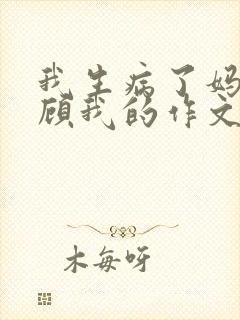 我生病了妈
顾我的作文
木每呀